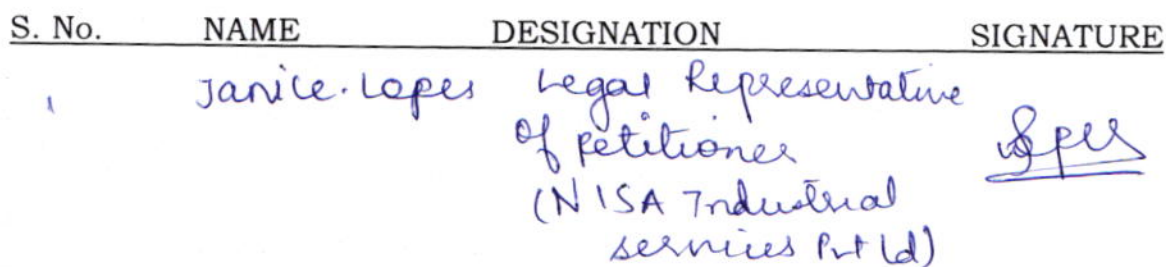 S. No. NAME DESIGNATION SIGNATURE
1 Janice. Lopes Legal Representative
Of petitioner
(NISA Industrial
services Pvt Ld)
Lopes